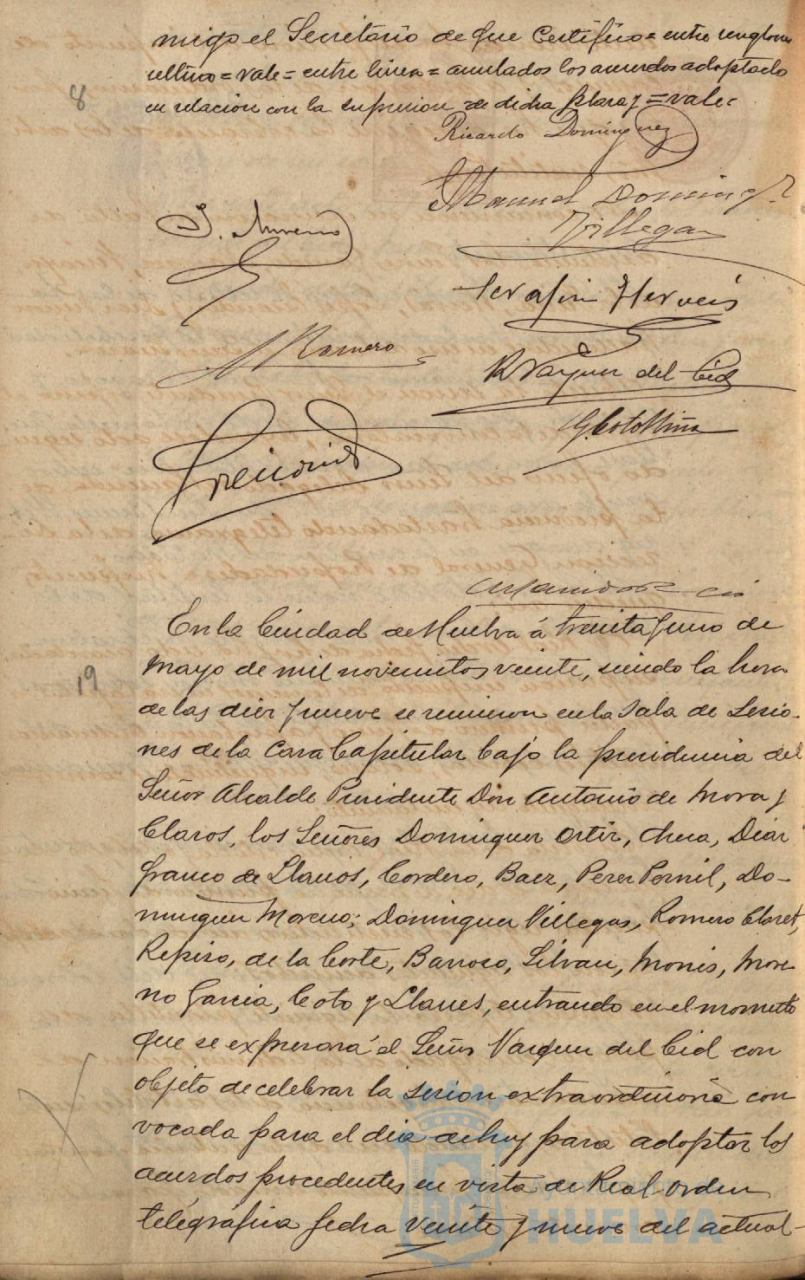 8
migo el Secretario de que Certifico = entre renglones
ultimo = vale = entre linea = anulados los acuerdos adoptados
en relacion con la supresion de dicha plaza y = vale =
Ricardo Dominguez
Manuel Doming.z
Villegas
J. Moreno
Serafin
A Romero
R Vazquez del Cid
G. Coto Mira
19
En la Ciudad de Huelva á treinta y uno de
Mayo de mil novecientos veinte, siendo la hora
de las diez y nueve se reunieron en la Sala de Sesio-
nes de la Casa Capitular bajo la presidencia del
Señor Alcalde Presidente Don Antonio de Mora y
Claros, los Señores Dominguez Ortiz, Checa, Diaz
franco de Llanos, Cordero, Baez, Perez Pornil, Do-
minguez Moreno; Dominguez Villegas, Romero Claret,
Repiso, de la Corte, Barroso, Silvan, Monis, More
no Garcia, Coto y Llanes, entrando en el momento
que se expresará el Señor Vazquez del Cid con
objeto de celebrar la sesion extraordinaria con
vocada para el dia de hoy para adoptar los
acuerdos procedentes en vista de Real orden
telegráfica fecha veinte y nueve del actual-
HUELVA